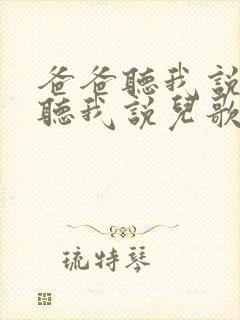 爸爸聽我說
聽我說兒歌
琉特琴